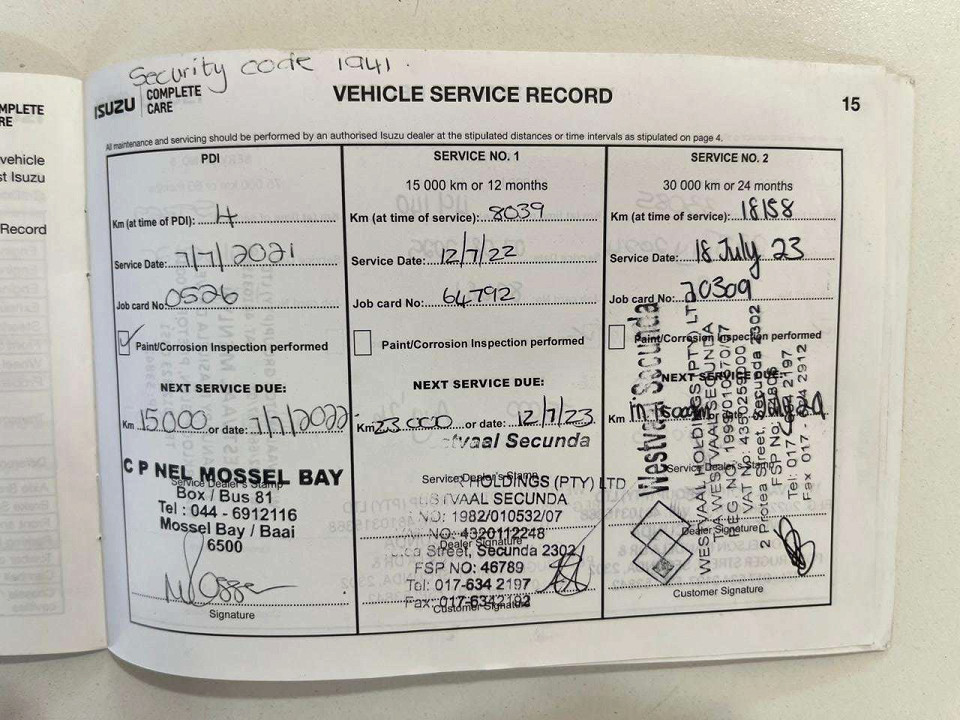 Security code 1941.
MPLETE
RE
vehicle
st Isuzu
Record
ISUZU COMPLETE CARE
VEHICLE SERVICE RECORD
15
All maintenance and servicing should be performed by an authorised Isuzu dealer at the stipulated distances or time intervals as stipulated on page 4.
PDI
Km (at time of PDI): 4
Service Date: 7/7/2021
Job card No: 0526
Paint/Corrosion Inspection performed
NEXT SERVICE DUE:
Km 15000 or date: 7/7/2022
C P NEL MOSSEL BAY
Service Dealer's Stamp
Box / Bus 81
Tel : 044 - 6912116
Mossel Bay / Baai
6500
Signature
SERVICE NO. 1
15 000 km or 12 months
Km (at time of service): 8039
Service Date: 12/7/22
Job card No: 64792
Paint/Corrosion Inspection performed
NEXT SERVICE DUE:
Km 23 000 or date: 12/7/23
tvaal Secunda
Service Dealer's Stamp
HOLDINGS (PTY) LTD
VAAL SECUNDA
NO: 1982/010532/07
NO: 4320112248
Dealer Signature
Street, Secunda 2302
FSP NO: 46789
Tel: 017-634 2197
Fax: 017-6342192
Customer Signature
SERVICE NO. 2
30 000 km or 24 months
Km (at time of service): 18158
Service Date: 18 July 23
Job card No: 70309
Paint/Corrosion Inspection performed
NEXT SERVICE DUE:
Km
July 24
Service Dealer's Stamp
Dealer Signature
Customer Signature
Westvaal Secunda
WESTVAAL HOLDINGS (PTY) LTD
T/A WESTVAAL SECUNDA
2 Protea Street, Secunda 2302